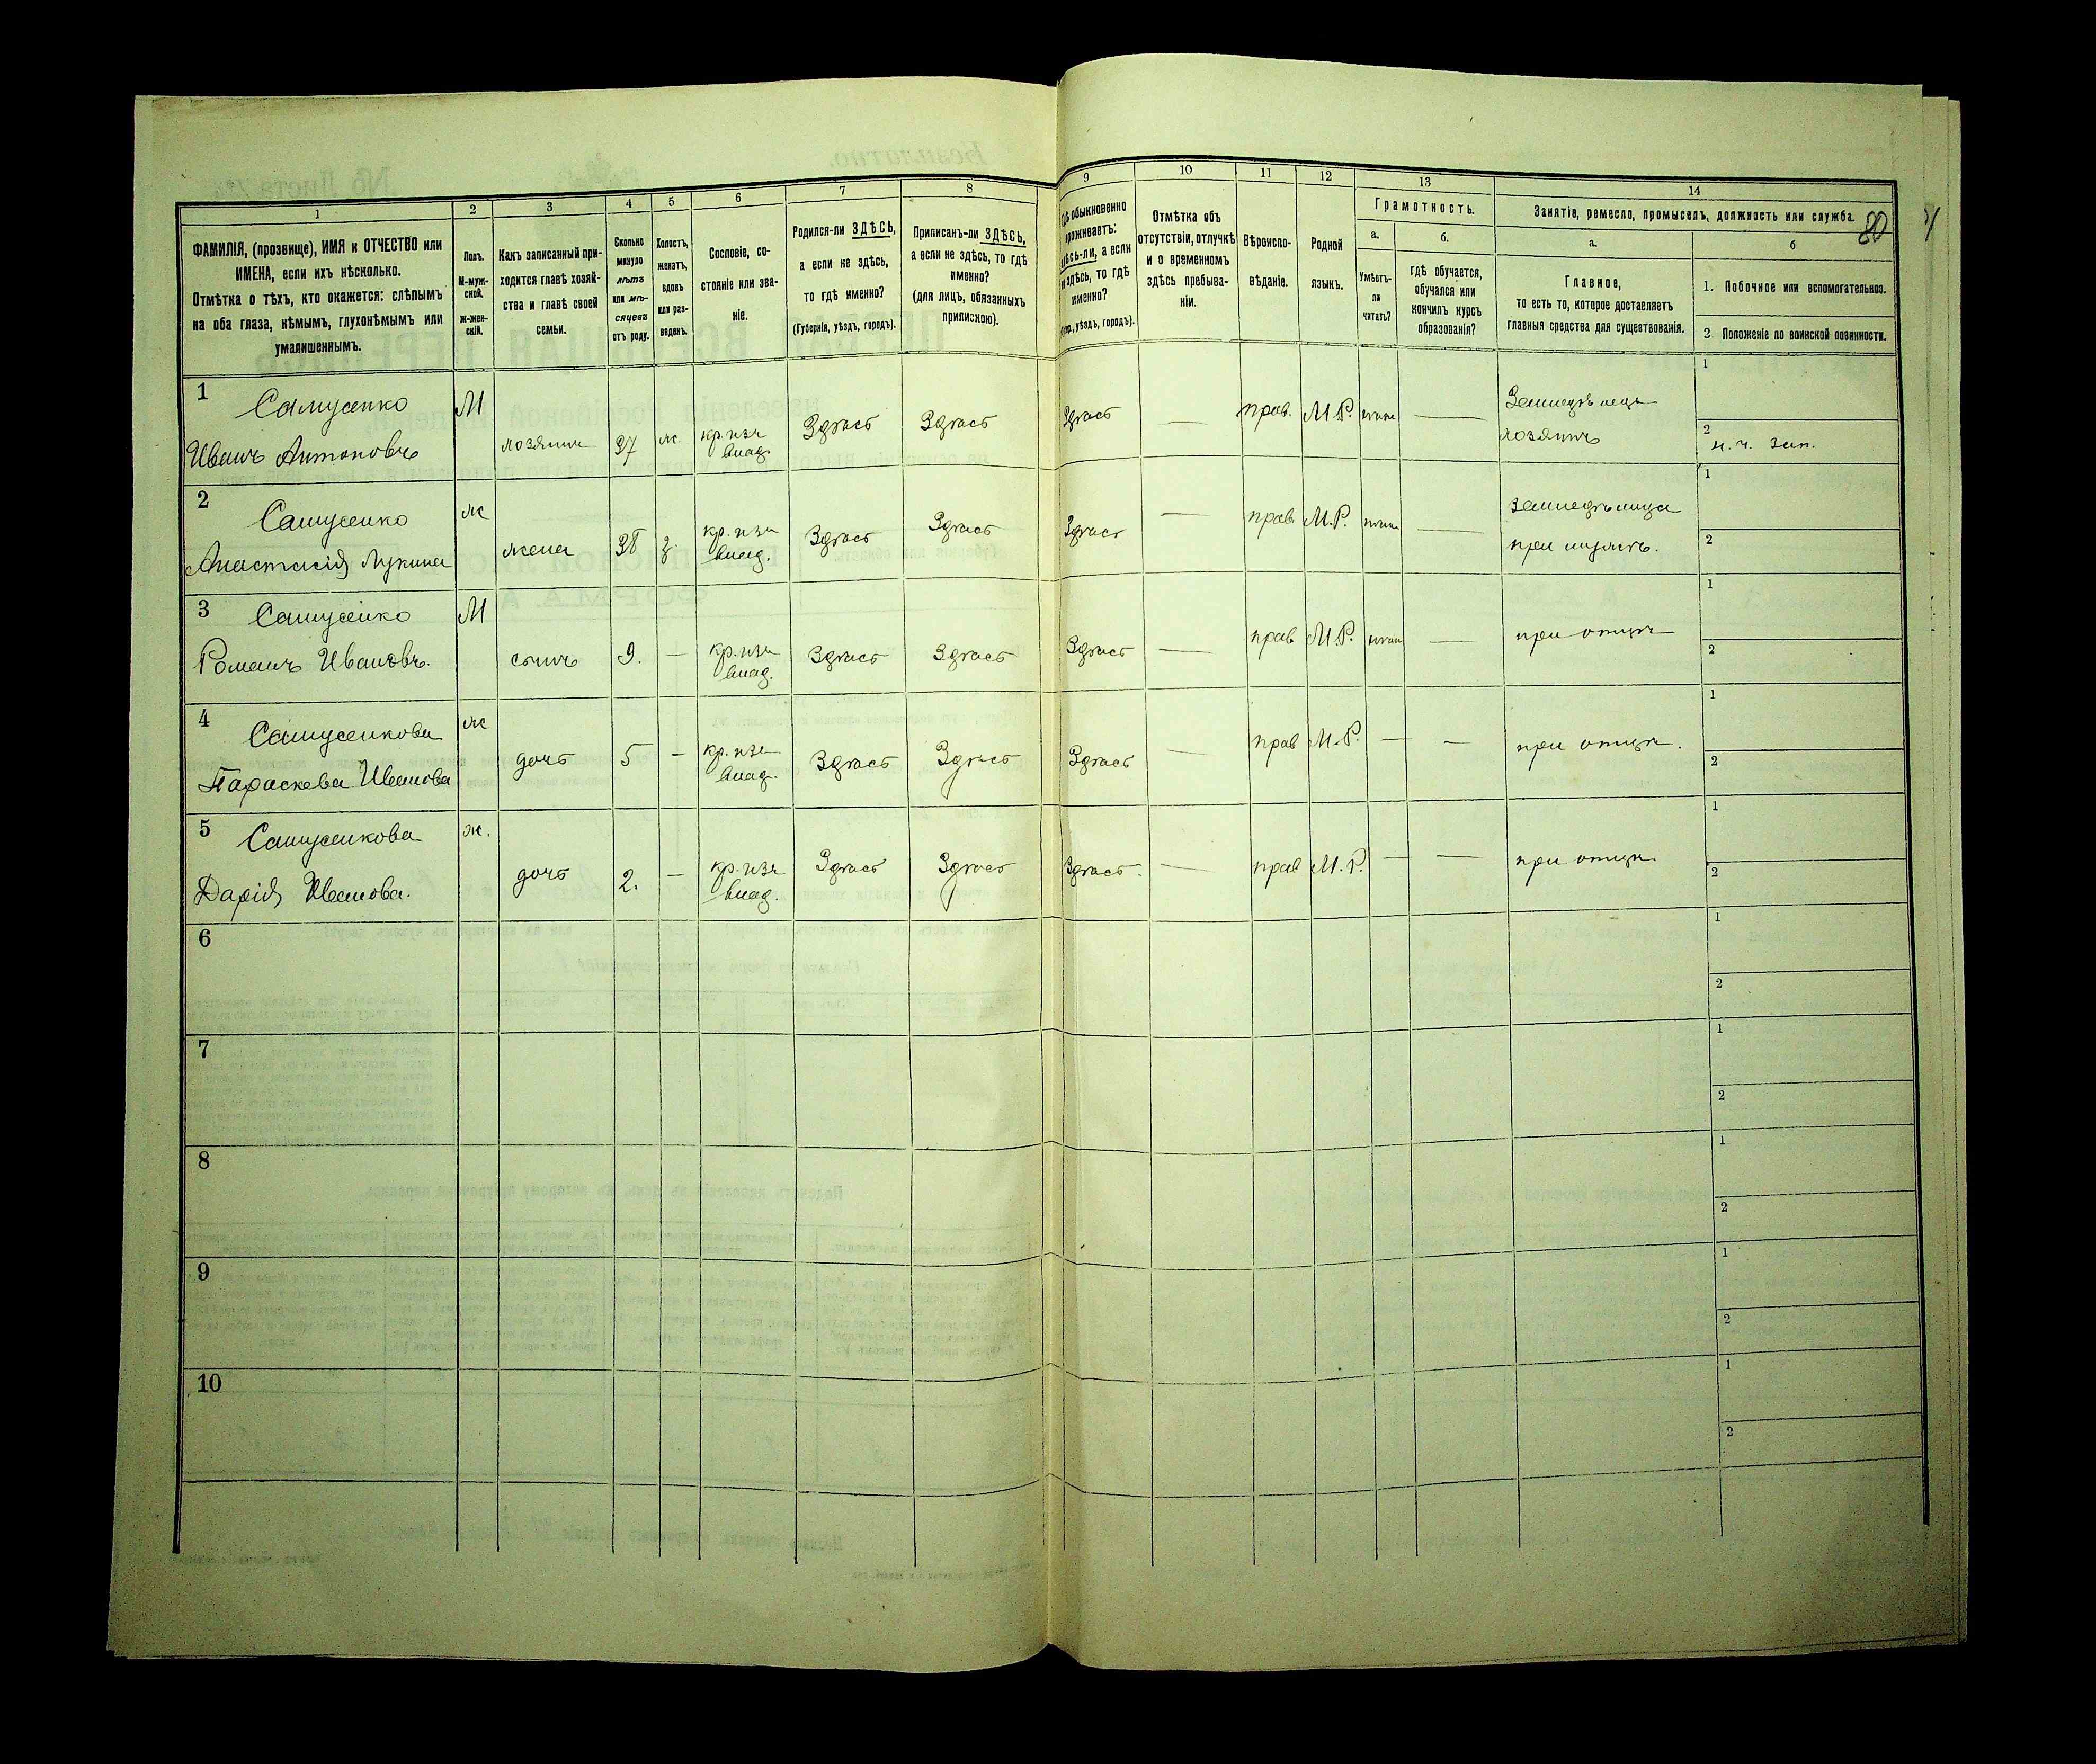 1
2
3
4
5
6
7
8
9
10
11
12
13
14
ФАМИЛІЯ, (прозвище), ИМЯ и ОТЧЕСТВО или
ИМЕНА, если ихъ нѣсколько.
Отмѣтка о тѣхъ, кто окажется: слѣпымъ
на оба глаза, нѣмымъ, глухонѣмымъ или
умалишеннымъ.
Полъ.
М-муж-
ской.
ж-жен-
скій.
Какъ записанный при-
ходится главѣ хозяй-
ства и главѣ своей
семьи.
Сколько
минуло
лѣтъ
или мѣ-
сяцевъ
отъ роду.
Холостъ,
женатъ,
вдовъ
или раз-
веденъ.
Сословіе, со-
стояніе или зва-
ніе.
Родился-ли ЗДѢСЬ,
а если не здѣсь,
то гдѣ именно?
(Губернія, уѣздъ, городъ).
Приписанъ-ли ЗДѢСЬ,
а если не здѣсь, то гдѣ
именно?
(для лицъ, обязанныхъ
припискою).
обыкновенно
проживаетъ:
здѣсь-ли, а если
не здѣсь, то гдѣ
именно?
уѣздъ, городъ).
Отмѣтка объ
отсутствіи, отлучкѣ
и о временномъ
здѣсь пребыва-
ніи.
Вѣроиспо-
вѣданіе.
Родной
языкъ.
Грамотность.
а.
Умѣетъ-
ли
читать?
б.
гдѣ обучается,
обучался или
кончилъ курсъ
образованія?
Занятіе, ремесло, промыселъ, должность или служба.
80
а.
Главное,
то есть то, которое доставляетъ
главныя средства для существованія.
б
1. Побочное или вспомогательное.
2. Положеніе по воинской повинности.
1
Самусенко
Иванъ Антоновъ
М
хозяинъ
37
ж
кр. изъ
влад.
Здѣсь
Здѣсь
Здѣсь
—
прав.
М.Р.
—
Земледѣлецъ
хозяинъ
1
2
н. ч. зап.
2
Самусенко
Анастасія Лукина
ж
жена
38
з.
кр. изъ
влад.
Здѣсь
Здѣсь
Здѣсь
—
прав
М.Р.
—
земледѣлица
при мужѣ.
1
2
3
Самусенко
Романъ Ивановъ.
М
сынъ
9.
—
кр. изъ
влад.
Здѣсь
Здѣсь
Здѣсь
—
прав
М.Р.
—
при отцѣ
1
2
4
Самусенкова
Параскева Иванова
ж
дочь
5
—
кр. изъ
влад.
Здѣсь
Здѣсь
Здѣсь
—
прав
М.Р.
—
—
при отцѣ.
1
2
5
Самусенкова
Дарія Иванова.
ж.
дочь
2.
—
кр. изъ
влад.
Здѣсь
Здѣсь
Здѣсь.
—
прав
М.Р.
—
—
при отцѣ
1
2
6
1
2
7
1
2
8
1
2
9
1
2
10
1
2